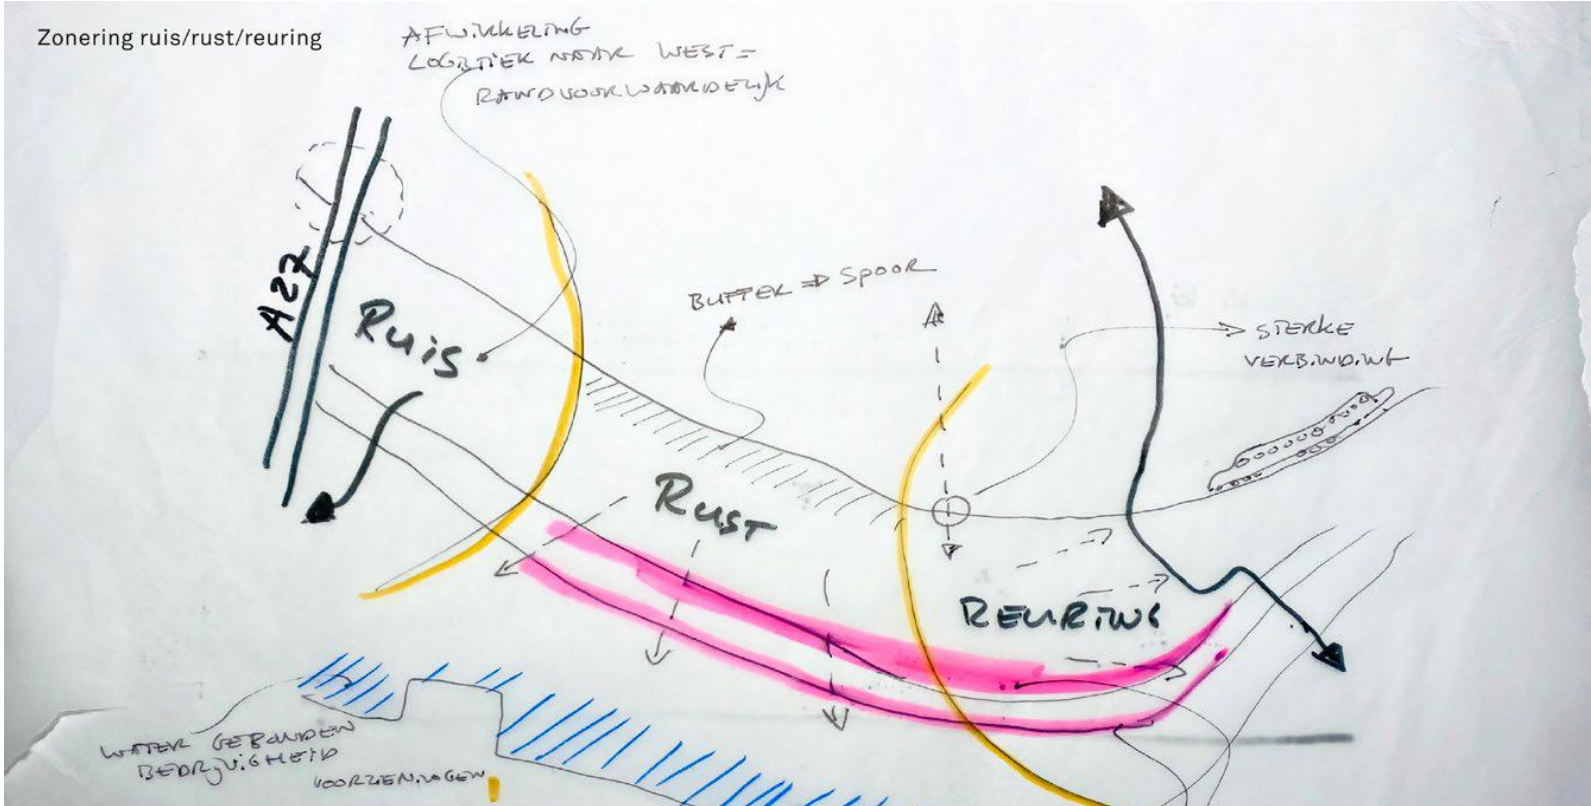 Zonering ruis/rust/reuring
AFWIKKELING
LOGISTIEK NAAR WEST =
RANDVOORWAARDELIJK
A27
RUIS
BUFFER ⇒ SPOOR
STERKE
VERBINDING
RUST
REURING
WATER GEBONDEN
BEDRIJVIGHEID
VOORZIENINGEN